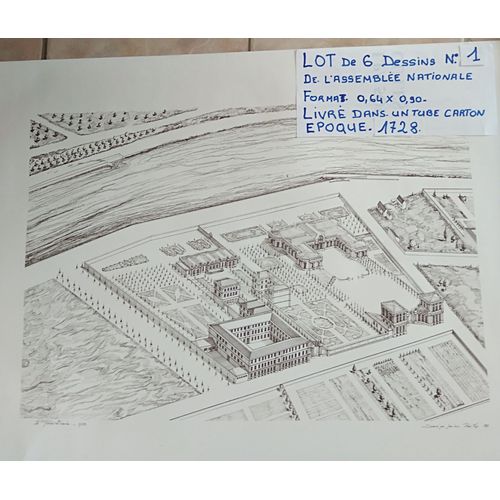 LOT DE 6 DESSINS N° 1
DE L'ASSEMBLÉE NATIONALE
FORMAT. 0,64 x 0,90-
LIVRÉ DANS UN TUBE CARTON
EPOQUE- 1728.